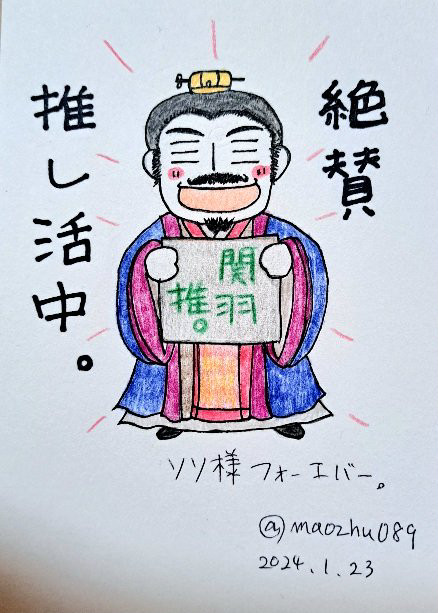 絶賛
推し活中。
関羽
推。
ソソ様フォーエバー。
@maozhu089
2024.1.23